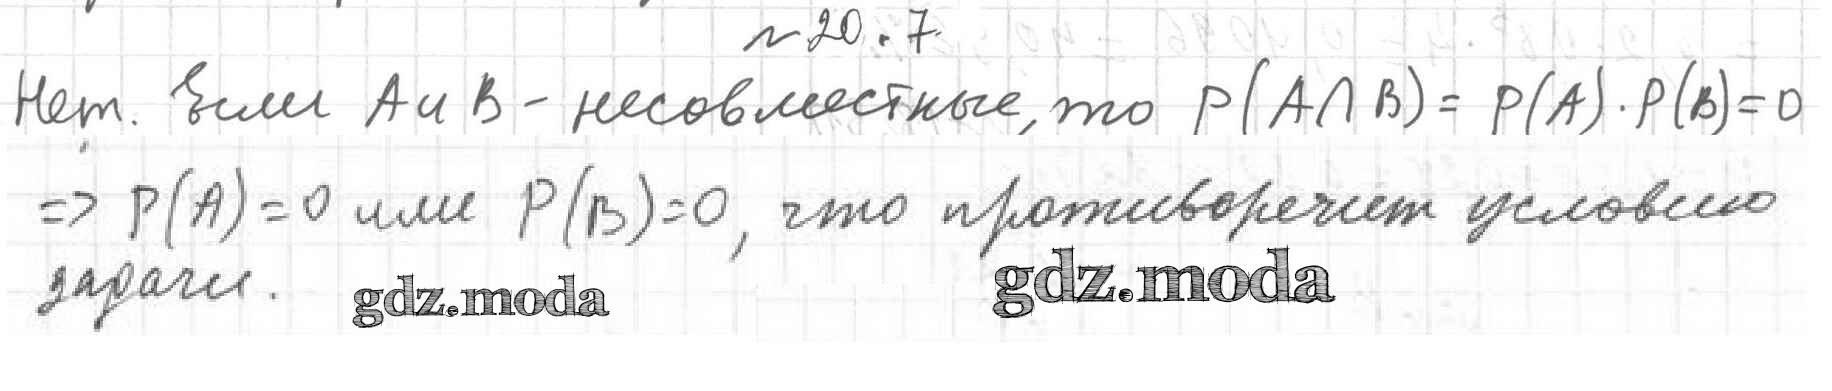 № 20.7.
Нет. Если A и B - несовместные, то P(A∩B) = P(A)·P(B)=0
=> P(A)=0 или P(B)=0, что противоречит условию
задачи.
gdz.moda
gdz.moda